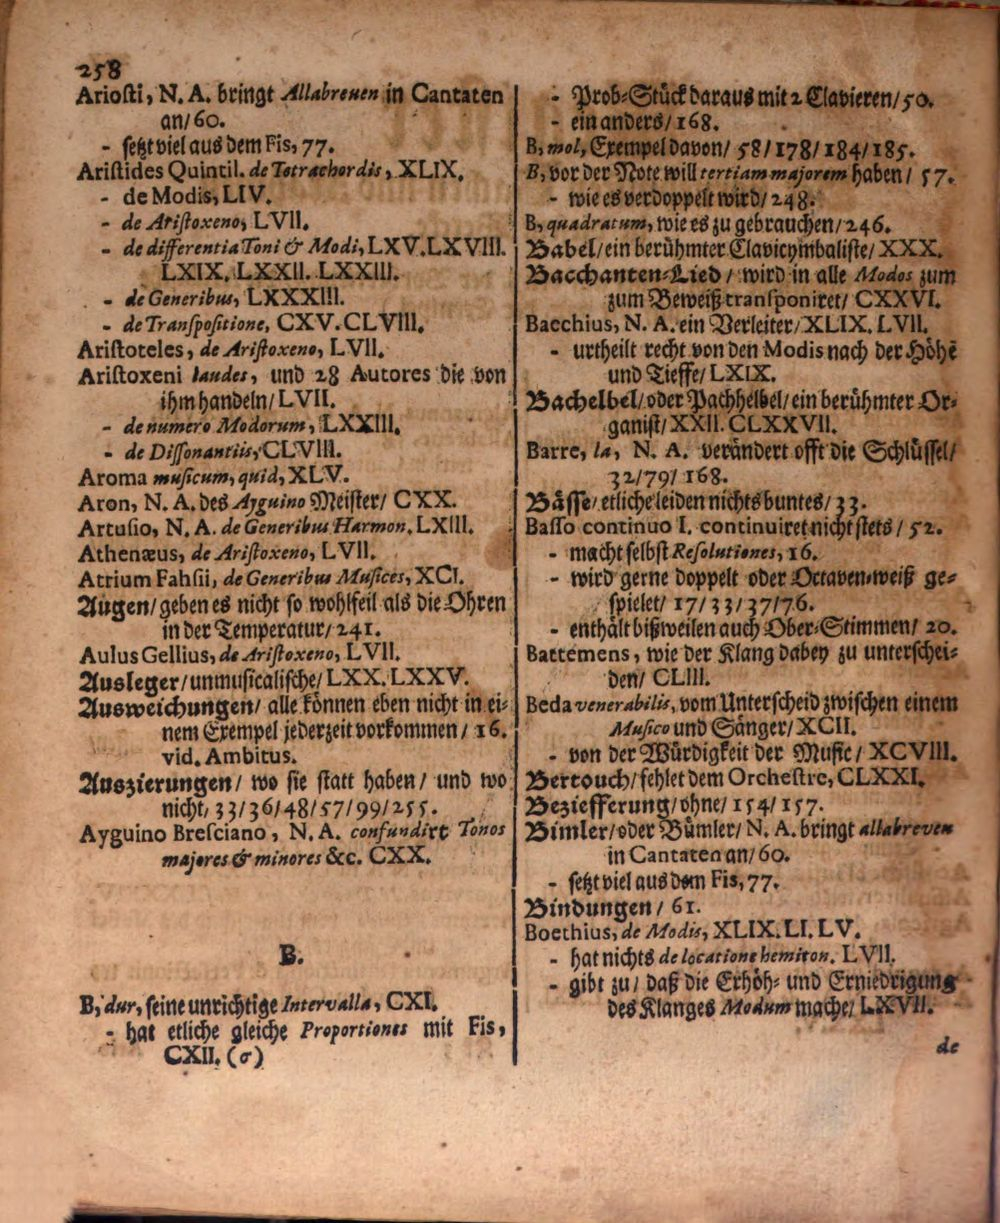 258
Ariosti, N. A. bringt Allabreven in Cantaten
an/ 60.
- setzt viel aus dem Fis, 77.
Aristides Quintil. de Tetrachordis, XLIX.
- de Modis, LIV.
- de Aristoxeno, LVII.
- de differentia Toni & Modi, LXV. LXVIII.
LXIX. LXXII. LXXIII.
- de Generibus, LXXXIII.
- de Transpositione, CXV. CLVIII.
Aristoteles, de Aristoxeno, LVII.
Aristoxeni laudes, und 28 Autores die von
ihm handeln/ LVII.
- de numero Modorum, LXXIII.
- de Dissonantiis, CLVIII.
Aroma musicum, quid, XLV.
Aron, N. A. des Ayguino Meister/ CXX.
Artusio, N. A. de Generibus Harmon. LXIII.
Athenæus, de Aristoxeno, LVII.
Atrium Fahsii, de Generibus Musices, XCI.
Augen/ geben es nicht so wohlfeil als die Ohren
in der Temperatur/ 241.
Aulus Gellius, de Aristoxeno, LVII.
Ausleger/ unmusicalische/ LXX. LXXV.
Ausweichungen/ alle können eben nicht in ei-
nem Exempel jederzeit vorkommen/ 16.
vid. Ambitus.
Auszierungen/ wo sie statt haben/ und wo
nicht, 33/ 36/ 48/ 57/ 99/ 255.
Ayguino Bresciano, N. A. confundirt Tonos
majores & minores &c. CXX.
B.
B, dur, seine unrichtige Intervalla, CXI.
- hat etliche gleiche Proportiones mit Fis,
CXII. (σ)
- Prob-Stück daraus mit 2 Clavieren/ 50.
- ein anders/ 168.
B, mol, Exempel davon/ 58/ 178/ 184/ 185.
B, vor der Note will tertiam majorem haben/ 57.
- wie es verdoppelt wird/ 248.
B, quadratum, wie es zu gebrauchen/ 246.
Babel/ ein berühmter Clavicymbaliste/ XXX.
Bacchanten-Lied/ wird in alle Modos zum
zum Beweiß transponiret/ CXXVI.
Bacchius, N. A. ein Verleiter/ XLIX. LVII.
- urtheilt recht von den Modis nach der Höhe
und Tieffe/ LXIX.
Bachelbel/ oder Pachhelbel/ ein berühmter Or-
ganist/ XXII. CLXXVII.
Barre, la, N. A. verändert offt die Schlüssel/
32/ 79/ 168.
Bässe/ etliche leiden nichts buntes/ 33.
Basso continuo I. continuiret nicht stets/ 52.
- macht selbst Resolutiones, 16.
- wird gerne doppelt oder Octaven-weiß ge-
spielet/ 17/ 33/ 37/ 76.
- enthält bißweilen auch Ober-Stimmen/ 20.
Battemens, wie der Klang dabey zu unterschei-
den/ CLIII.
Beda venerabilis, vom Unterscheid zwischen einem
Musico und Sänger/ XCII.
- von der Würdigkeit der Music/ XCVIII.
Bertouch/ fehlet dem Orchestre, CLXXI.
Beziefferung/ ohne/ 154/ 157.
Bimler/ oder Bümler/ N. A. bringt allabreven
in Cantaten an/ 60.
- setzt viel aus dem Fis, 77.
Bindungen/ 61.
Boethius, de Modis, XLIX. LI. LV.
- hat nichts de locatione hemiton. LVII.
- gibt zu/ daß die Erhöh- und Erniedrigung
des Klanges Modum mache/ LXVII.
de